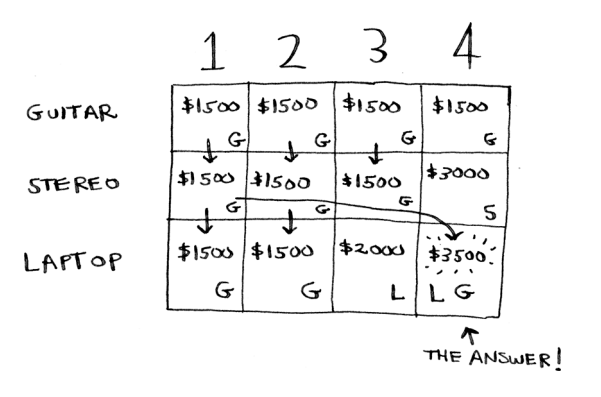 1 2 3 4
GUITAR $1500 G $1500 G $1500 G $1500 G
STEREO $1500 G $1500 G $1500 G $3000 S
LAPTOP $1500 G $1500 G $2000 L $3500 L G
THE ANSWER!